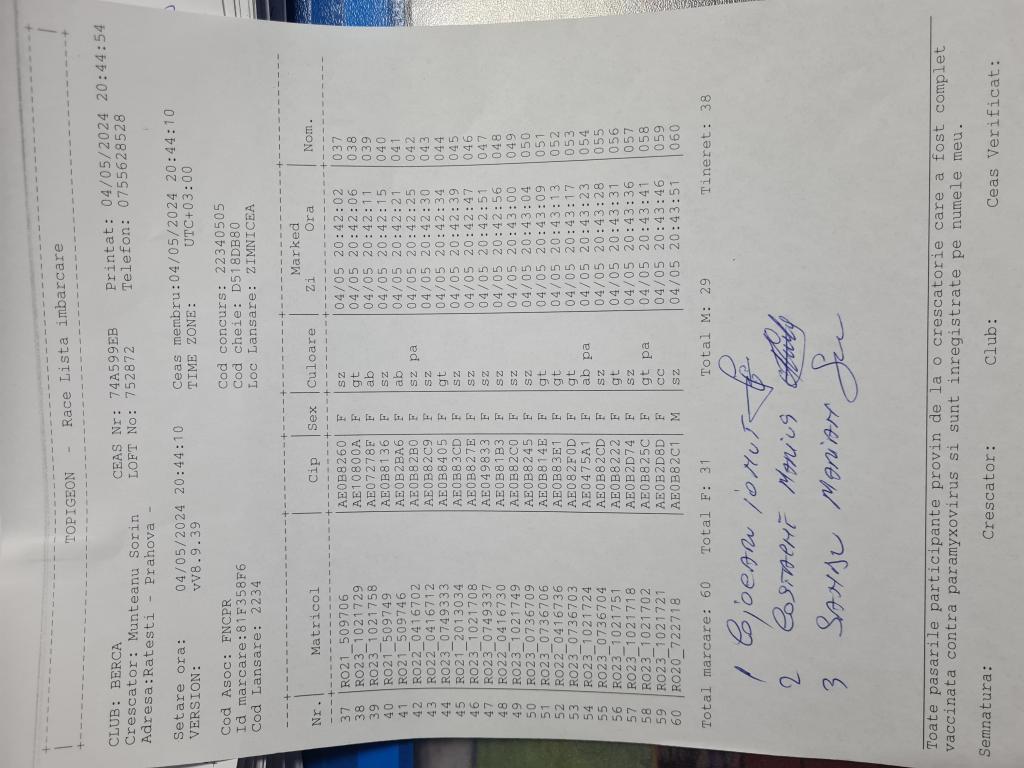 TOPIGEON - Race Lista imbarcare
CLUB: BERCA CEAS Nr: 74A599EB Printat: 04/05/2024 20:44:54
Crescator: Munteanu Sorin LOFT No: 752872 Telefon: 0755628528
Adresa:Ratesti - Prahova -
Setare ora: 04/05/2024 20:44:10 Ceas membru:04/05/2024 20:44:10
VERSION: vV8.9.39 TIME ZONE: UTC+03:00
Cod Asoc: FNCPR Cod concurs: 22340505
Id marcare:81F358F6 Cod cheie: D518DB80
Cod Lansare: 2234 Loc Lansare: ZIMNICEA
Marked
Nr.| Matricol | Cip |Sex |Culoare | Zi Ora | Nom.
37 |RO21_509706 |AE0B8260 | F |sz |04/05 20:42:02 |037
38 |RO23_1021729 |AE10800A | F |gt |04/05 20:42:06 |038
39 |RO23_1021758 |AE07278F | F |ab |04/05 20:42:11 |039
40 |RO21_509749 |AE0B8136 | F |sz |04/05 20:42:15 |040
41 |RO21_509746 |AE0B2BA6 | F |ab |04/05 20:42:21 |041
42 |RO22_0416702 |AE0B82B0 | F |sz pa |04/05 20:42:25 |042
43 |RO22_0416712 |AE0B82C9 | F |sz |04/05 20:42:30 |043
44 |RO23_0749333 |AE0B8405 | F |gt |04/05 20:42:34 |044
45 |RO21_2013034 |AE0B83CD | F |sz |04/05 20:42:39 |045
46 |RO23_1021708 |AE0B827E | F |sz |04/05 20:42:47 |046
47 |RO23_0749337 |AE049833 | F |sz |04/05 20:42:51 |047
48 |RO22_0416730 |AE0B81B3 | F |sz |04/05 20:42:56 |048
49 |RO23_1021749 |AE0B82C0 | F |sz |04/05 20:43:00 |049
50 |RO23_0736709 |AE0B8245 | F |sz |04/05 20:43:04 |050
51 |RO23_0736706 |AE0B814E | F |gt |04/05 20:43:09 |051
52 |RO22_0416736 |AE0B83E1 | F |gt |04/05 20:43:13 |052
53 |RO23_0736703 |AE082F0D | F |gt |04/05 20:43:17 |053
54 |RO23_1021724 |AE0475A1 | F |ab pa |04/05 20:43:23 |054
55 |RO23_0736704 |AE0B82CD | F |sz |04/05 20:43:28 |055
56 |RO23_1021751 |AE0B8222 | F |gt |04/05 20:43:31 |056
57 |RO23_1021718 |AE0B2D74 | F |sz |04/05 20:43:36 |057
58 |RO23_1021702 |AE0B825C | F |gt pa |04/05 20:43:41 |058
59 |RO23_1021721 |AE0B2D8D | F |cc |04/05 20:43:46 |059
60 |RO20_722718 |AE0B82C1 | M |sz |04/05 20:43:51 |060
Total marcare: 60 Total F: 31 Total M: 29 Tineret: 38
1 Cojocaru Ionut
2 Costache Marius
3 Sandu Marian
Toate pasarile participante provin de la o crescatorie care a fost complet
vaccinata contra paramyxovirus si sunt inregistrate pe numele meu.
Semnatura: Crescator: Club: Ceas Verificat: